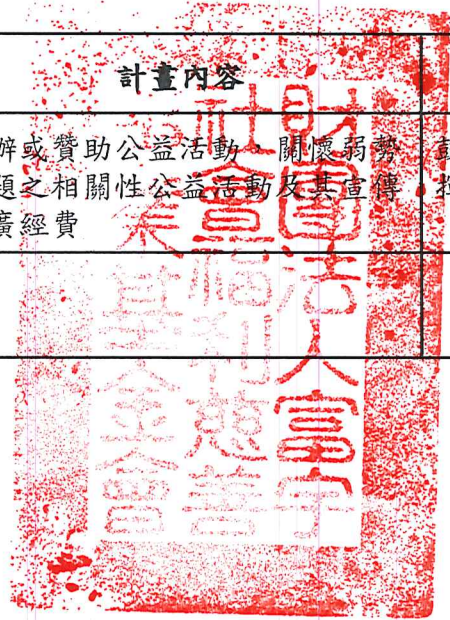 計畫內容
辦或贊助公益活動，關懷弱勢
題之相關性公益活動及其宣傳
廣經費
財團法人富宇
社會福利慈善
業基金會